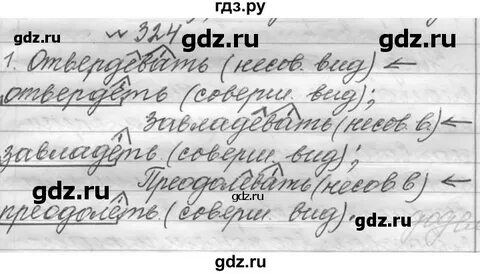 гдз.ру
№ 324
gdz.ru gdz.ru
1. Отвердевать (несов. вид) ←
отвердеть (соверш. вид);
gdz.ru gdz.ru
Завладевать (несов. в.) ←
завладеть (соверш. вид);
Преодолевать (несов. в) ←
gdz.ru gdz.ru
преодолеть (соверш. вид).
gdz.ru gdz.ru